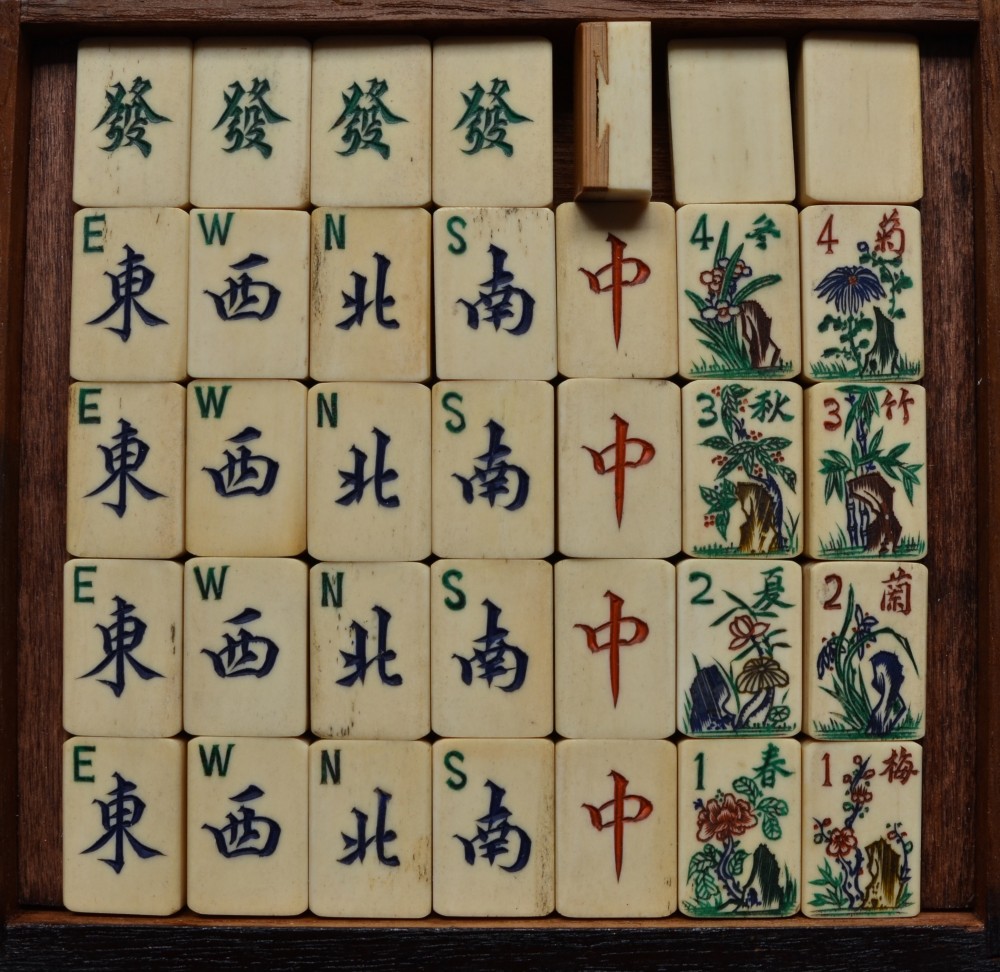 發 發 發 發
E 東 W 西 N 北 S 南 中 4 冬 4 菊
E 東 W 西 N 北 S 南 中 3 秋 3 竹
E 東 W 西 N 北 S 南 中 2 夏 2 蘭
E 東 W 西 N 北 S 南 中 1 春 1 梅